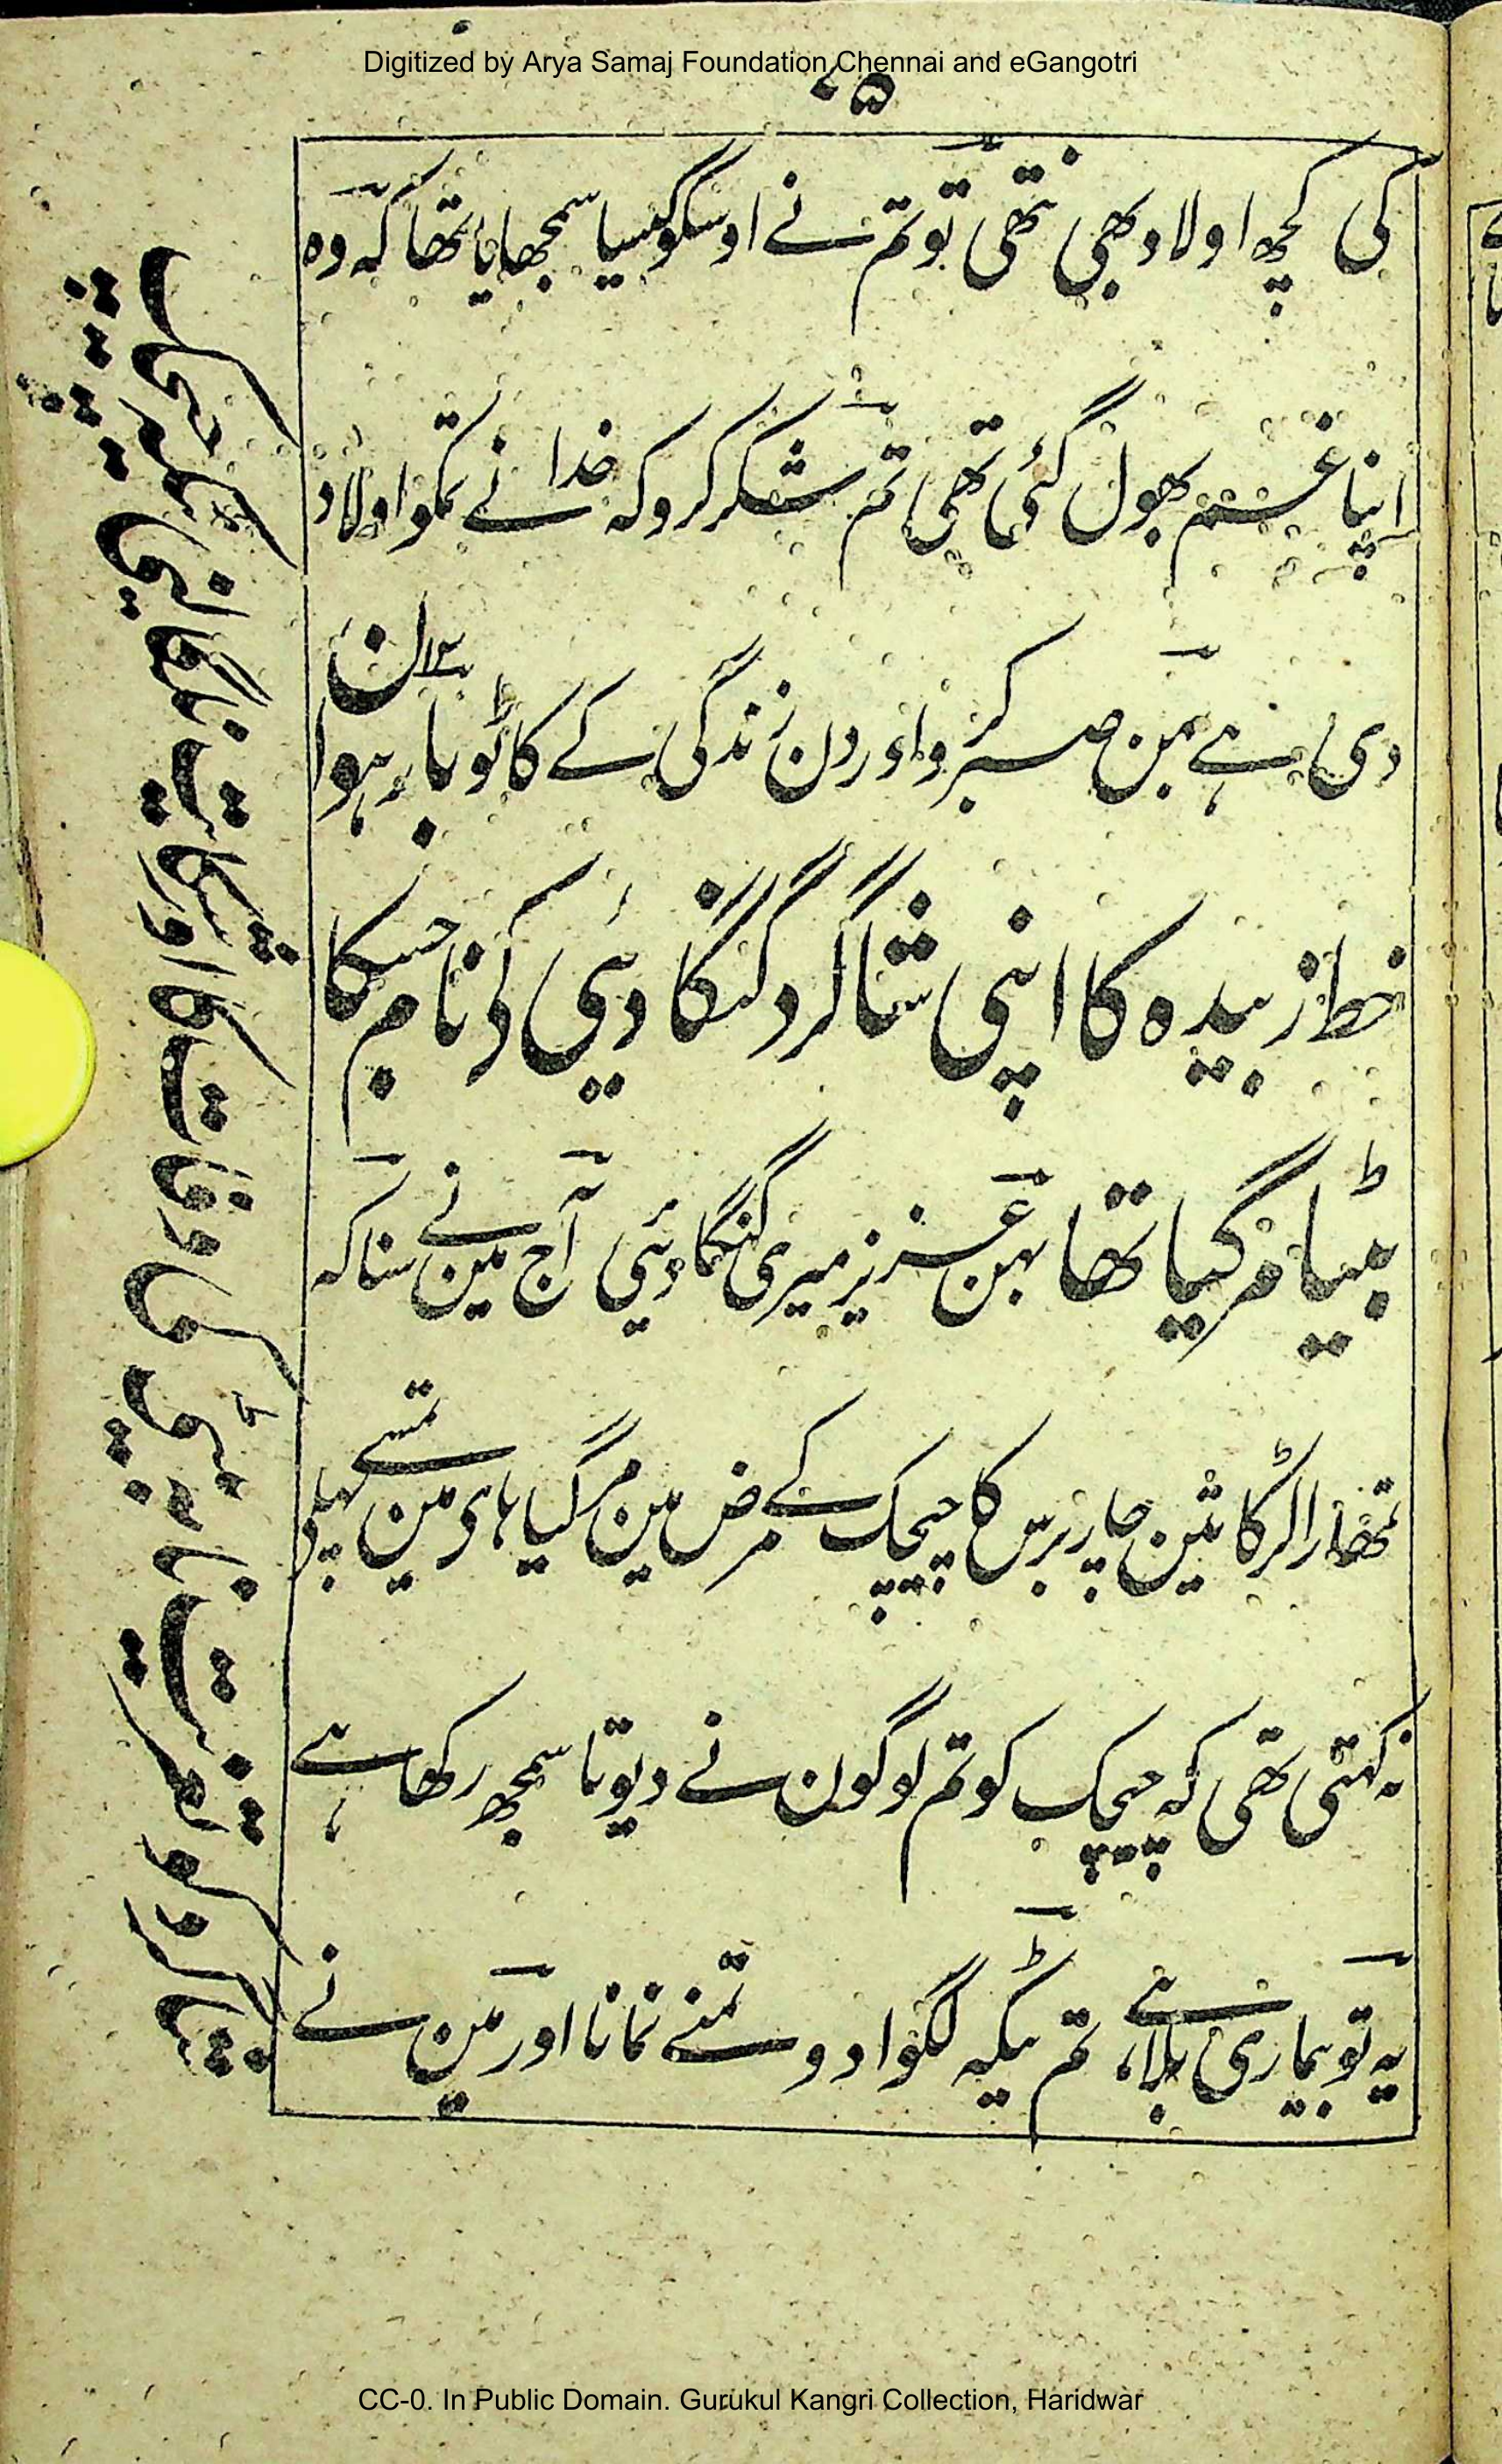 Digitized by Arya Samaj Foundation Chennai and eGangotri
کی کچھ اولاد بھی نتھی تو تم نے اوسکو کیسا سمجھایا تھا کہ وہ
اپنا غم بھول گئی تھی تم شکر کرو کہ خدا نے تمکو اولاد
دی ہے بہن صبر کرو اور دن زندگی کے کاٹو
خط زبیدہ کا اپنی شاگرد گنگا دیئی کی نام جسکا
بیٹا مر گیا تھا بہن عزیز میری گنگا دیئی آج مین نے سنا کہ
تمھارا لڑکا تین چار برس کا چیچک کے مرض مین مر گیا ہای مین تمسے پہلی
نہ کہتی تھی کہ چیچک کو تم لوگون نے دیوتا سمجھ رکھا ہے
یہ تو بیماری بلا ہے تم ٹیکہ لگوا دو تمنے نمانا اور مین نے
شاگرد کو تعزیت نامہ بیٹی کی وفات کا اور شکایت
CC-0. In Public Domain. Gurukul Kangri Collection, Haridwar